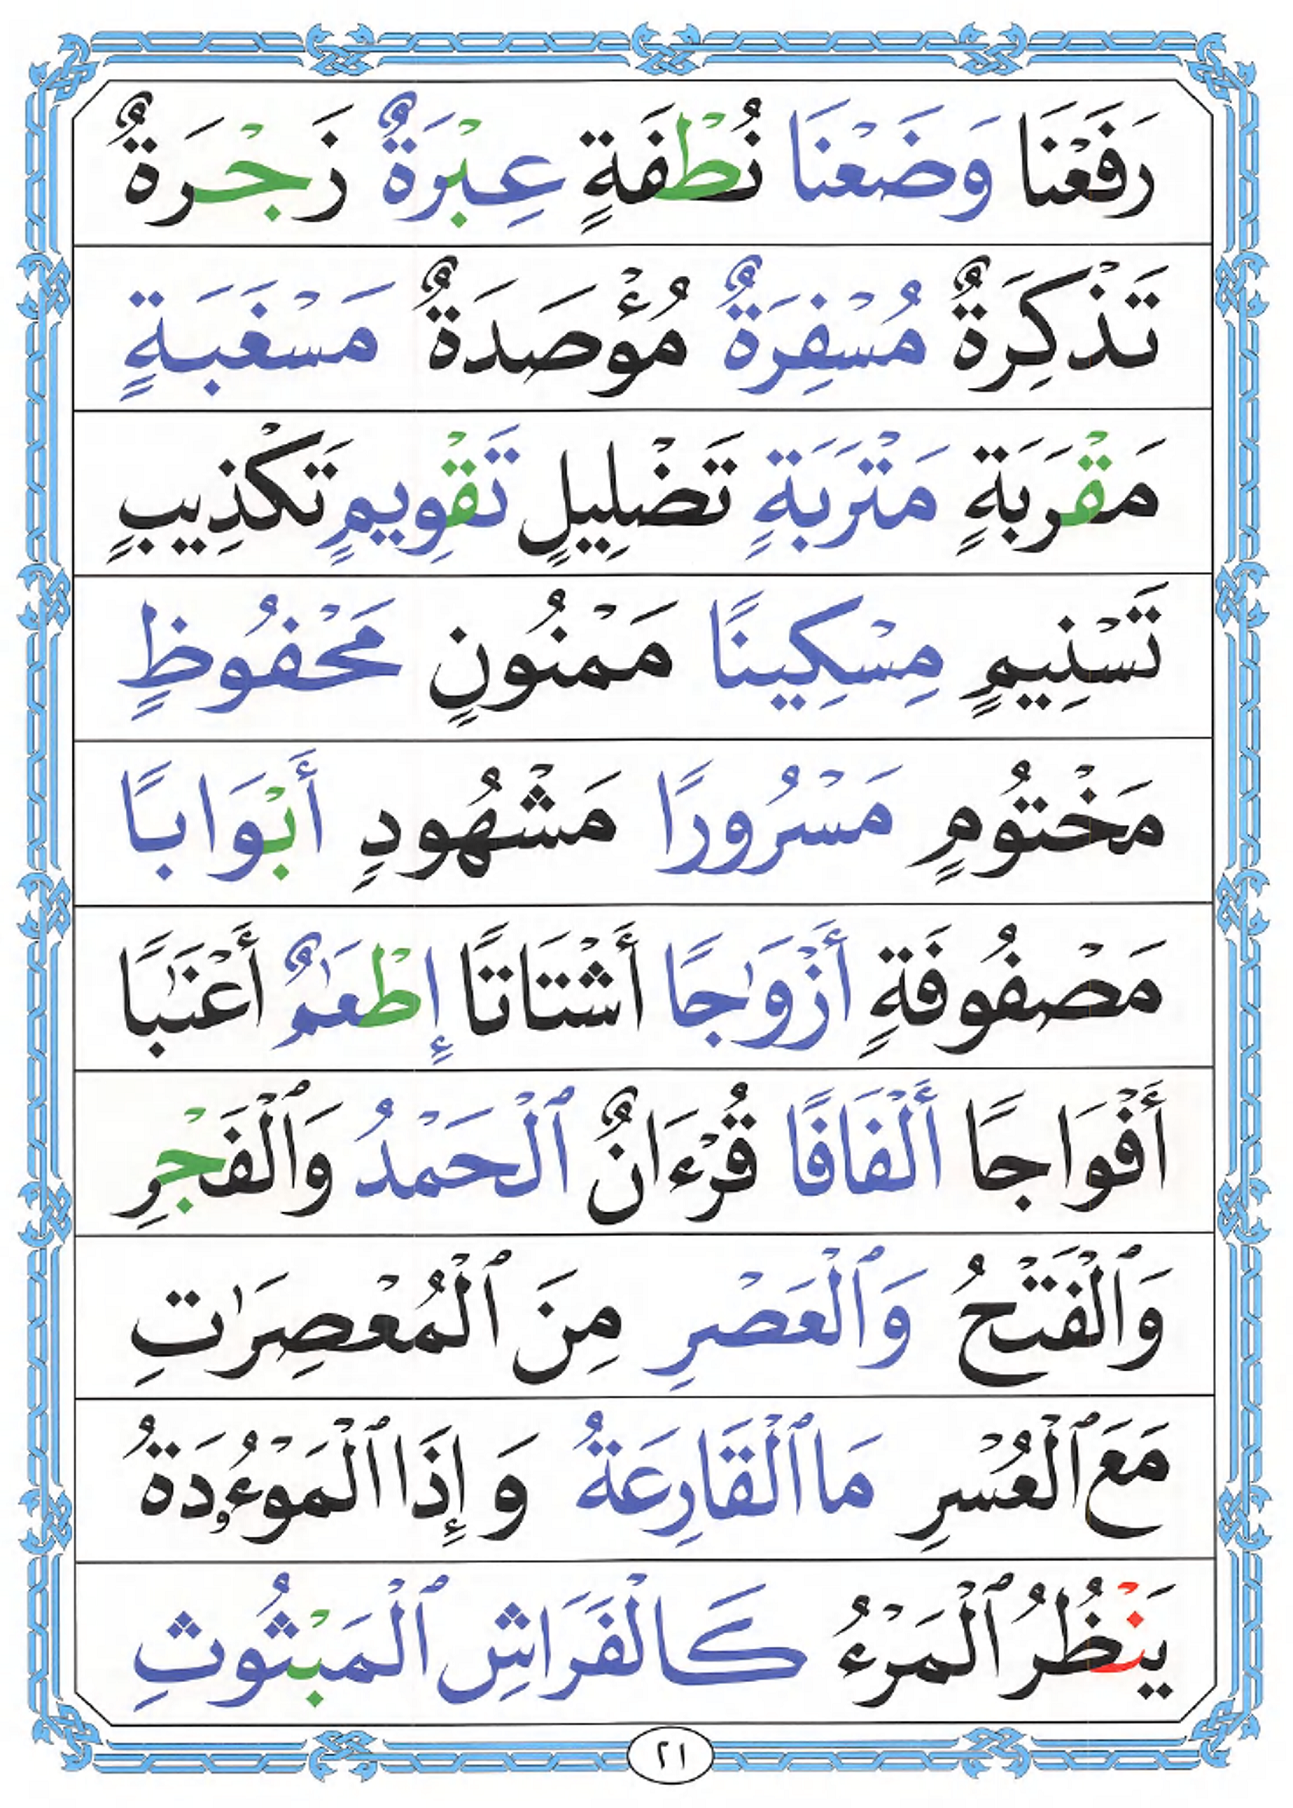 رَفَعْنَا وَضَعْنَا نُطْفَةٍ عِبْرَةٌ زَجْرَةٌ
تَذْكِرَةٌ مُسْفِرَةٌ مُؤْصَدَةٌ مَسْغَبَةٍ
مَقْرَبَةٍ مَتْرَبَةٍ تَضْلِيلٍ تَقْوِيمٍ تَكْذِيبٍ
تَسْنِيمٍ مِسْكِينًا مَمْنُونٍ مَحْفُوظٍ
مَخْتُومٍ مَسْرُورًا مَشْهُودٍ أَبْوَابًا
مَصْفُوفَةٍ أَزْوَٰجًا أَشْتَاتًا إِطْعَٰمٌ أَعْنَٰبًا
أَفْوَاجًا أَلْفَافًا قُرْءَانٌ ٱلْحَمْدُ وَٱلْفَجْرِ
وَٱلْفَتْحُ وَٱلْعَصْرِ مِنَ ٱلْمُعْصِرَٰتِ
مَعَ ٱلْعُسْرِ مَا ٱلْقَارِعَةُ وَإِذَا ٱلْمَوْءُۥدَةُ
يَنْظُرُ ٱلْمَرْءُ كَالْفَرَاشِ ٱلْمَبْثُوثِ
٢١